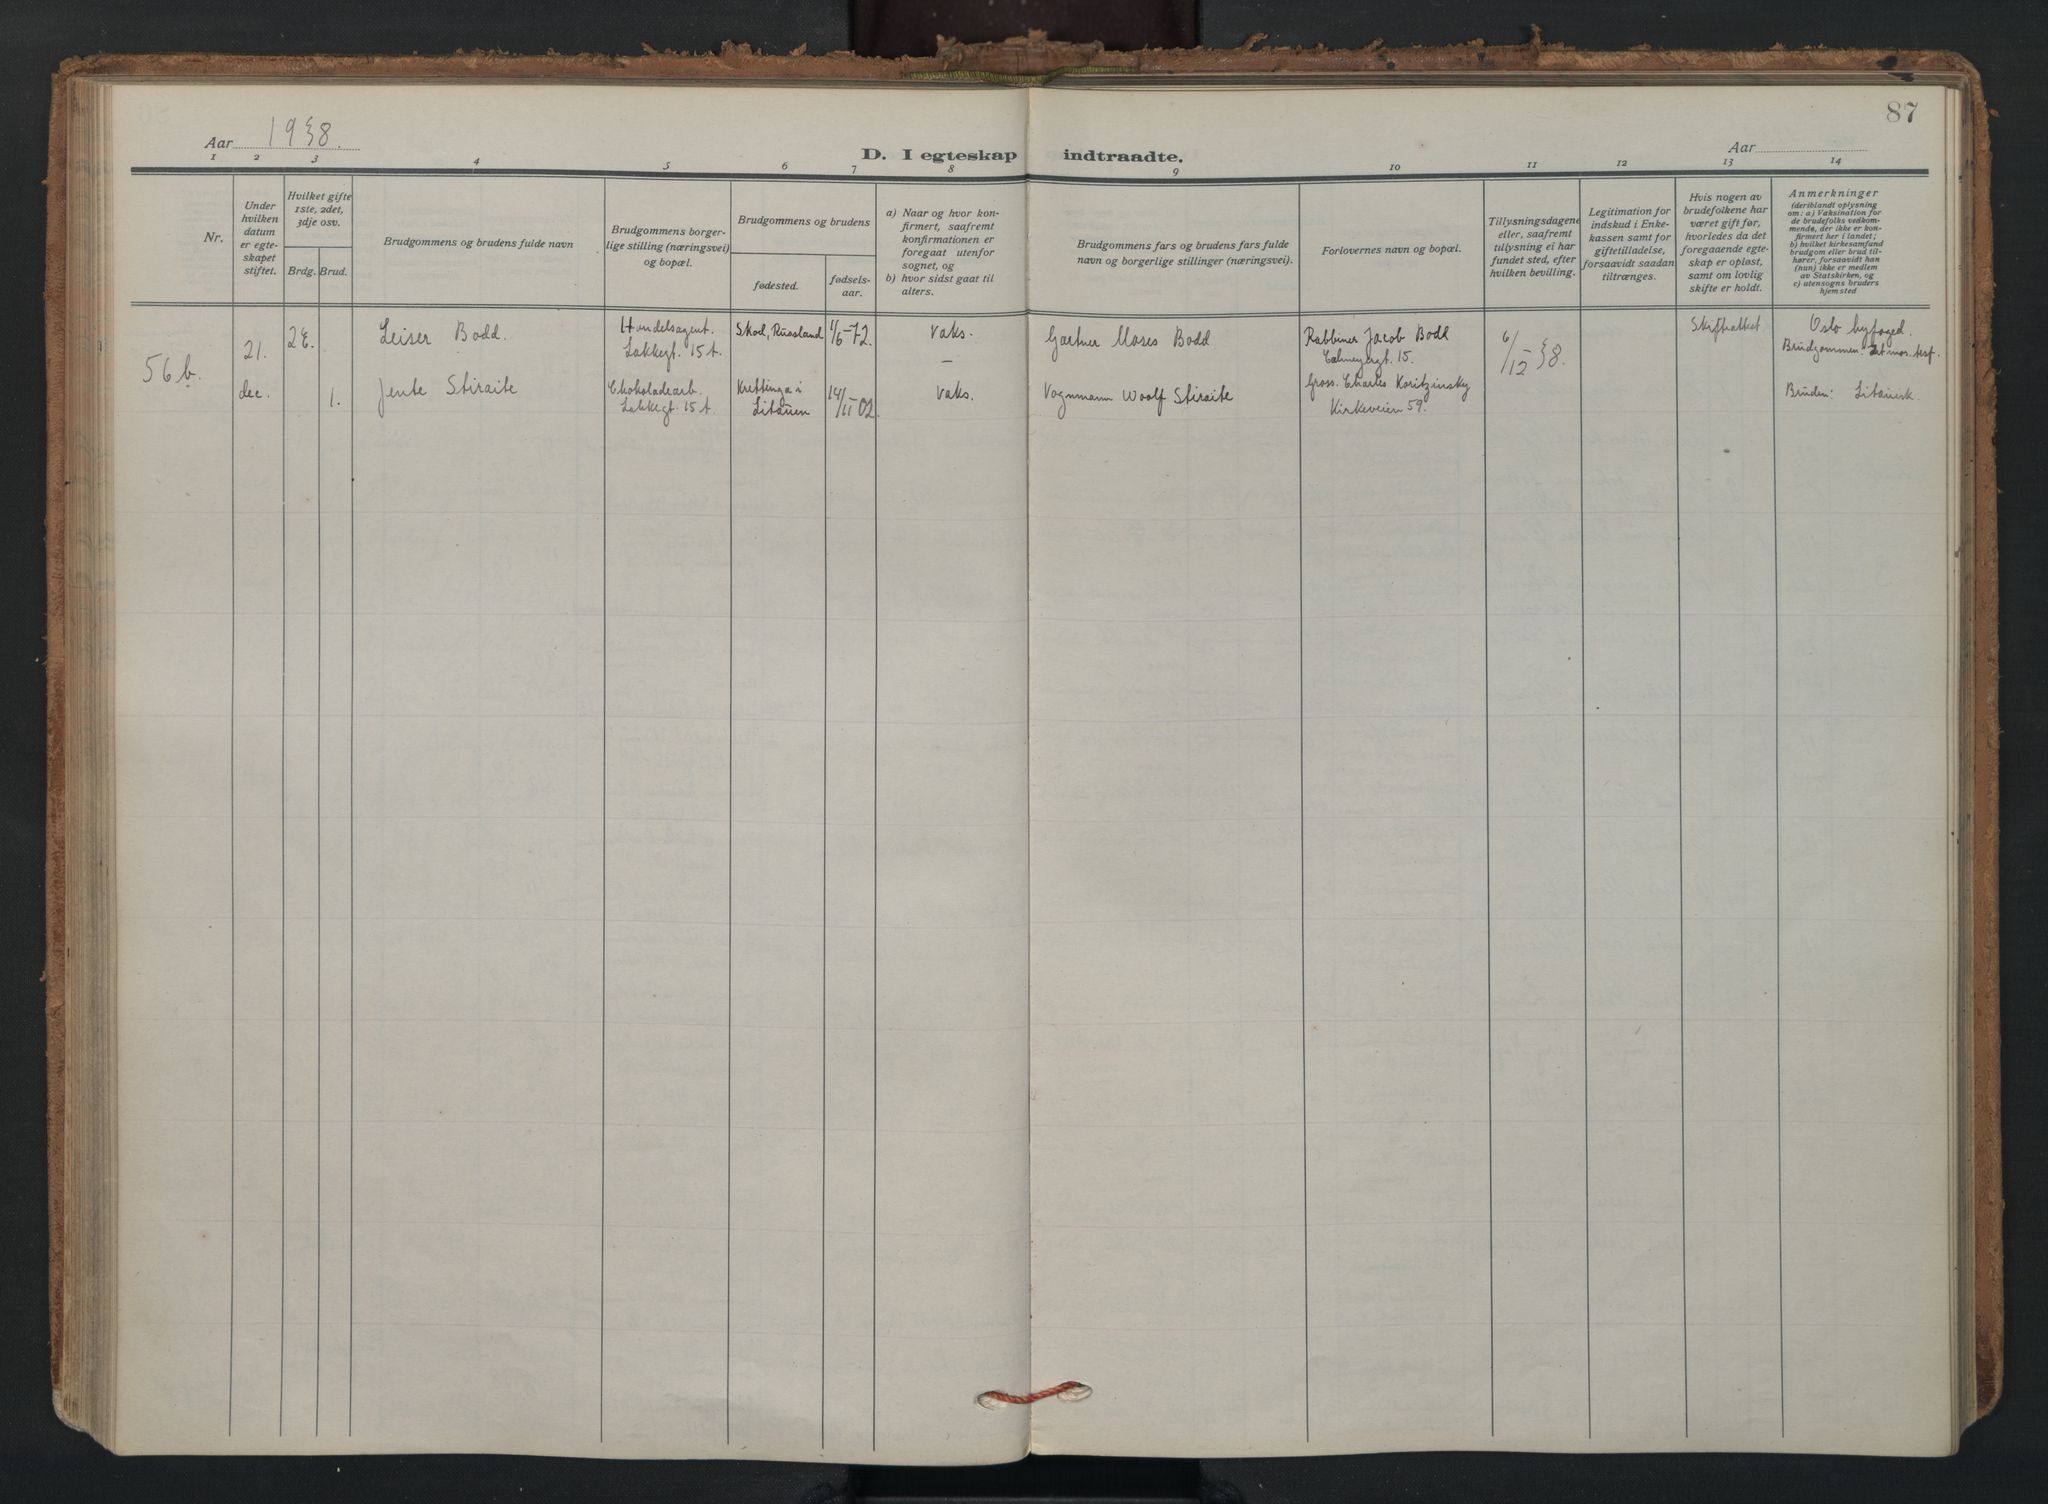 87
Aar 1938.
D. I egteskap indtraadte.
Aar
1 2 3 4 5 6 7 8 9 10 11 12 13 14
Nr.
Under
hvilken
datum
er egte-
skapet
stiftet.
Hvilket gifte
1ste, 2det,
3dje osv.
Brdg.
Brud.
Brudgommens og brudens fulde navn
Brudgommens borger-
lige stilling (næringsvei)
og bopæl.
Brudgommens og brudens
fødested.
fødsels-
aar.
a) Naar og hvor kon-
firmert, saafremt
konfirmationen er
foregaat utenfor
sognet, og
b) hvor sidst gaat til
alters.
Brudgommens fars og brudens fars fulde
navn og borgerlige stillinger (næringsvei).
Forlovernes navn og bopæl.
Tillysningsdagene
eller, saafremt
tillysning ei har
fundet sted, efter
hvilken bevilling.
Legitimation for
indskud i Enke-
kassen samt for
giftetilladelse,
forsaavidt saadan
tiltrænges.
Hvis nogen av
brudefolkene har
været gift før,
hvorledes da det
foregaaende egte-
skap er opløst,
samt om lovlig
skifte er holdt.
Anmerkninger
(deriblandt oplysning
om: a) Vaksination for
de brudefolks vedkom-
mende, der ikke er kon-
firmert her i landet;
b) hvilket kirkesamfund
brudgom eller brud til-
hører, forsaavidt han
(hun) ikke er medlem
av Statskirken, og
c) utensogns bruders
hjemsted
56 b.
21.
dec.
2E.
Leiser Bodd.
Handelsagent.
Lakkegt. 15 t.
Skod, Russland
1/6-72.
Vaks.
—
Gartner Moses Bodd
Rabbiner Jacob Bodd
Calmeyersgt. 15.
6/12 38.
Skifteattest
Oslo byfoged.
Brudgommen:
1.
Jente Stiraite
Chokoladearb.
Lakkegt. 15 t.
Krettinga i
Litauen
14/11 02.
Vaks.
Vognmann Woolf Stiraite
Gross. Charles Koritzinsky
Kirkeveien 59.
Bruden: Litauisk.